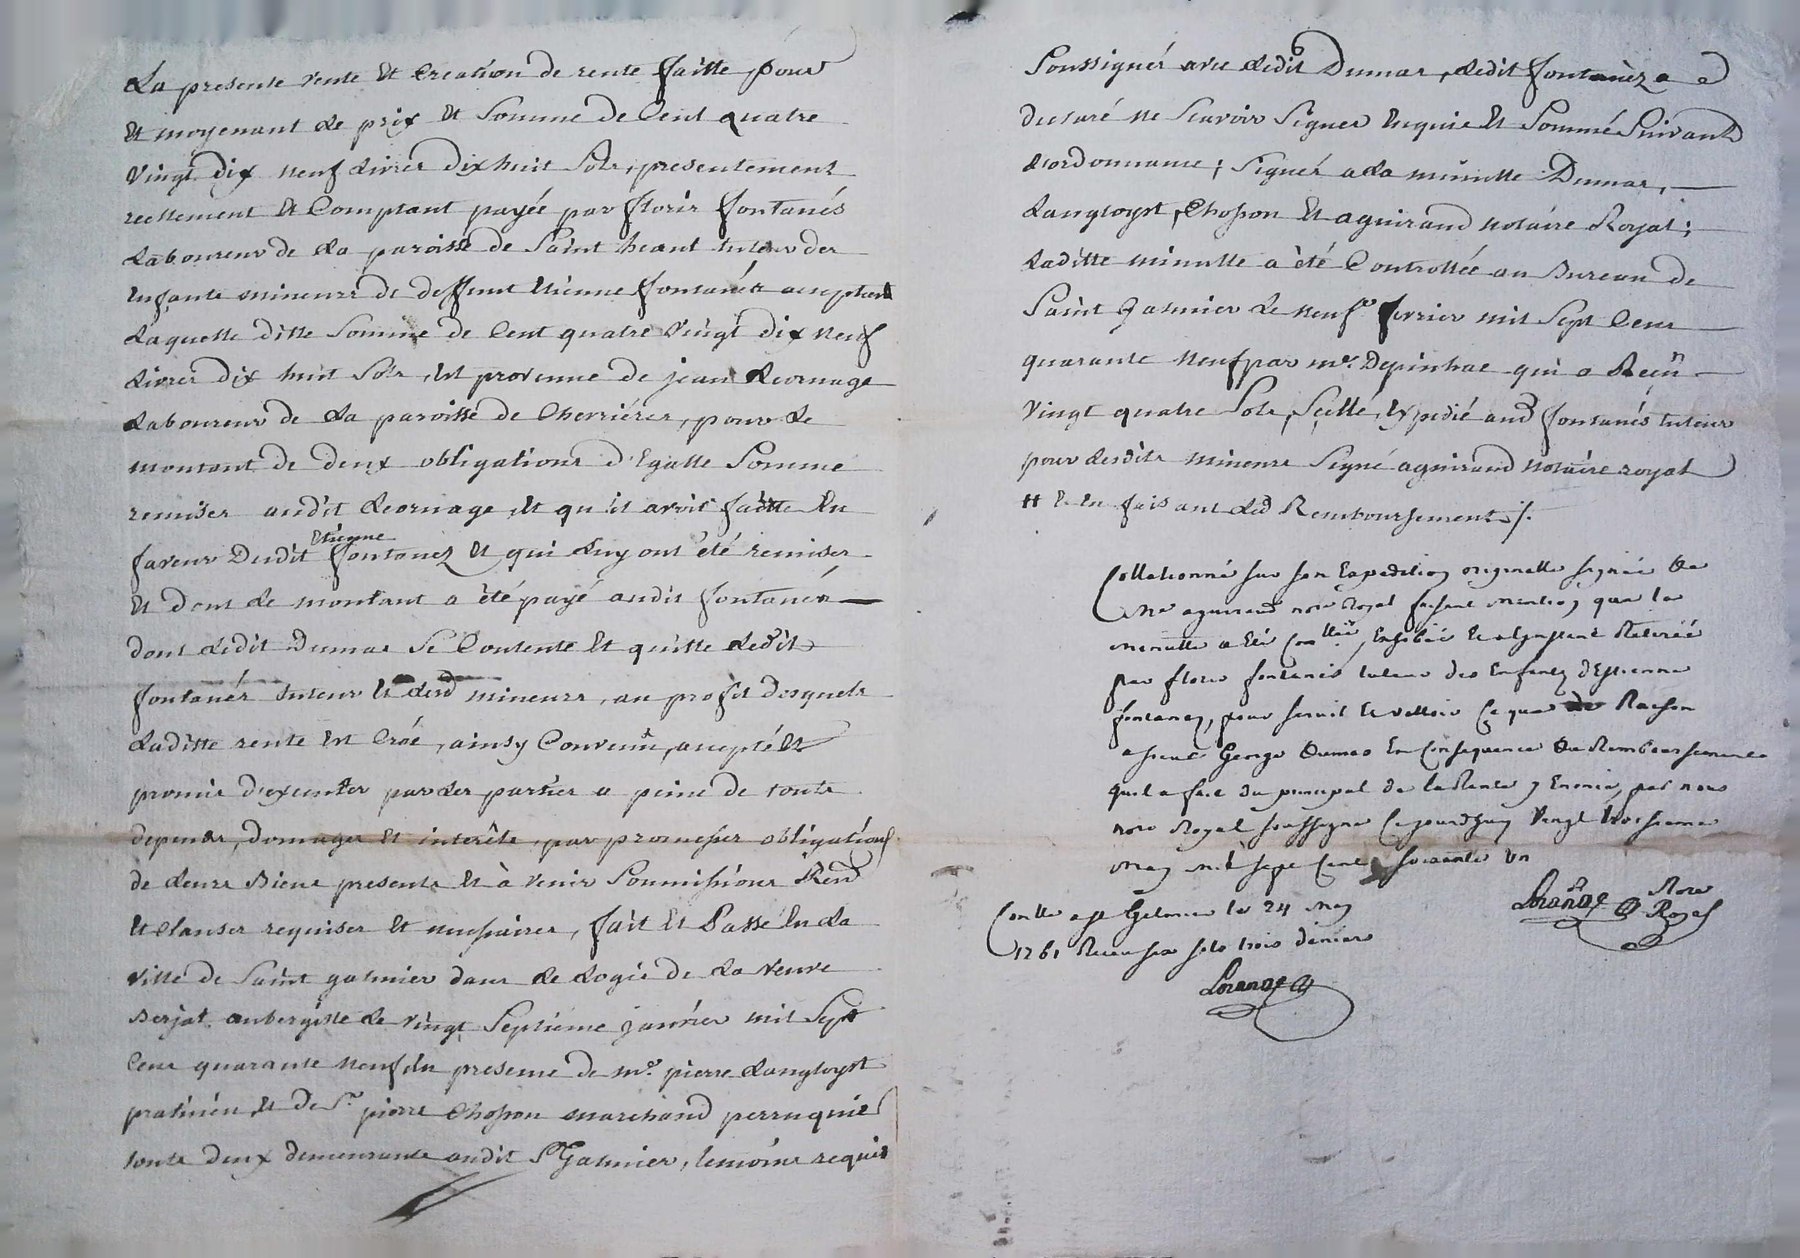 La presente vente et creation de rente faitte pour
et moyenant le prix et somme de cent quatre
vingt dix neuf livres dix huit sols, presentement
reellement et comptant payée par floris fontanés
laboureur de la paroisse de Saint heant tuteur des
enfants mineurs de deffunt etienne fontanés acceptant
laquelle ditte somme de cent quatre vingt dix neuf
livres dix huit sols, est provenue de jean Lecornage
laboureur de la paroisse de Cherriéres, pour le
montant de deux obligations d'egalle somme
remises audit Lecornage, et qu'il avoit faitte en
etienne
faveur Dudit fontanez et qui luy ont été remises
et dont le montant a été payé audit fontanés
dont ledit Dumas se contente et quitte ledit
fontanés tuteur et lesd mineurs, au profit desquels
laditte rente est créé, ainsy convenu, accepté et
promis d'executer par les parties a peine de touts
depens, domages et interêts, par promesses obligations
de leurs biens presents et à venir soumissions Rend
et clauses requises et necessaires, fait et Passé en la
ville de Saint galmier dans le logis de la veuve
Berjat aubergiste le vingt septieme janvier mil sept
cens quarante neuf en presence de me. pierre Langloyst
praticien, et de Sr. pierre Chosson marchand perruquier
touts deux demeurants audit St Galmier, temoins requis
soussignés avec ledit Dumas, ledit fontanéz a
declaré ne scavoir signer enquis et sommé suivant
l'ordonnance; signés a la minutte Dumas,
Langloyst, Chosson et aguiraud notaire Royal;
laditte minutte a été controllée au Bureau de
Saint Galmier le neufe. fevrier mil sept cens
quarante neuf par me. Depinhac qui a Reçu
vingt quatre sols, scellé, expedié aud fontanés tuteur
pour lesdits mineurs signé aguiraud notaire royal
# et en faisant led Remboursement ./.
Collationné sur son Expedition originelle signée De
Me aguiraud nore Royal faisant mention que la
minutte a été conllée, Exhibée et a l'instant Retirée
par floris fontanes tuteur des Enfants d'Estienne
fontanez, pour servir et valloir ce que de Raison
a sieur George Dumas En Consequence du Remboursement
quil a fait du principal de la Rente y Enoncée, par nous
nore Royal soussigné Cejourdhuy Vingt troisieme
may mil sept cent soixante un
Lorange Nore
Royal
Conllé a st Galmier le 24 may
1761 Reçu six sols trois deniers
Lorange